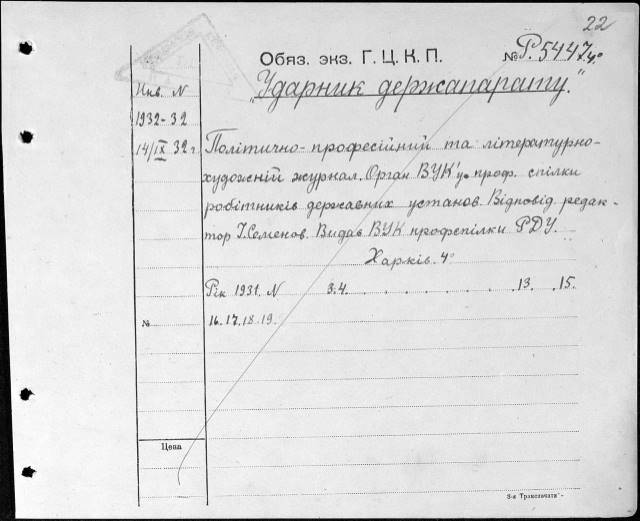 22
Обяз. экз. Г. Ц. К. П. № Р. 5447 4°
„Ударник держапарату."
Инв. N
1932-32
14/IX 32 г.
Політично-професійний та літературно-
художній журнал. Орган ВУК'у проф. спілки
робітників державних установ. Відповід. редак-
тор І. Семенов. Видав ВУК профспілки РДУ.
Харків. 4°
Рік 1931. N 3.4. . . . . . . . . 13. . 15.
№ 16. 17. 18. 19.
Цена
3-я Транспечати